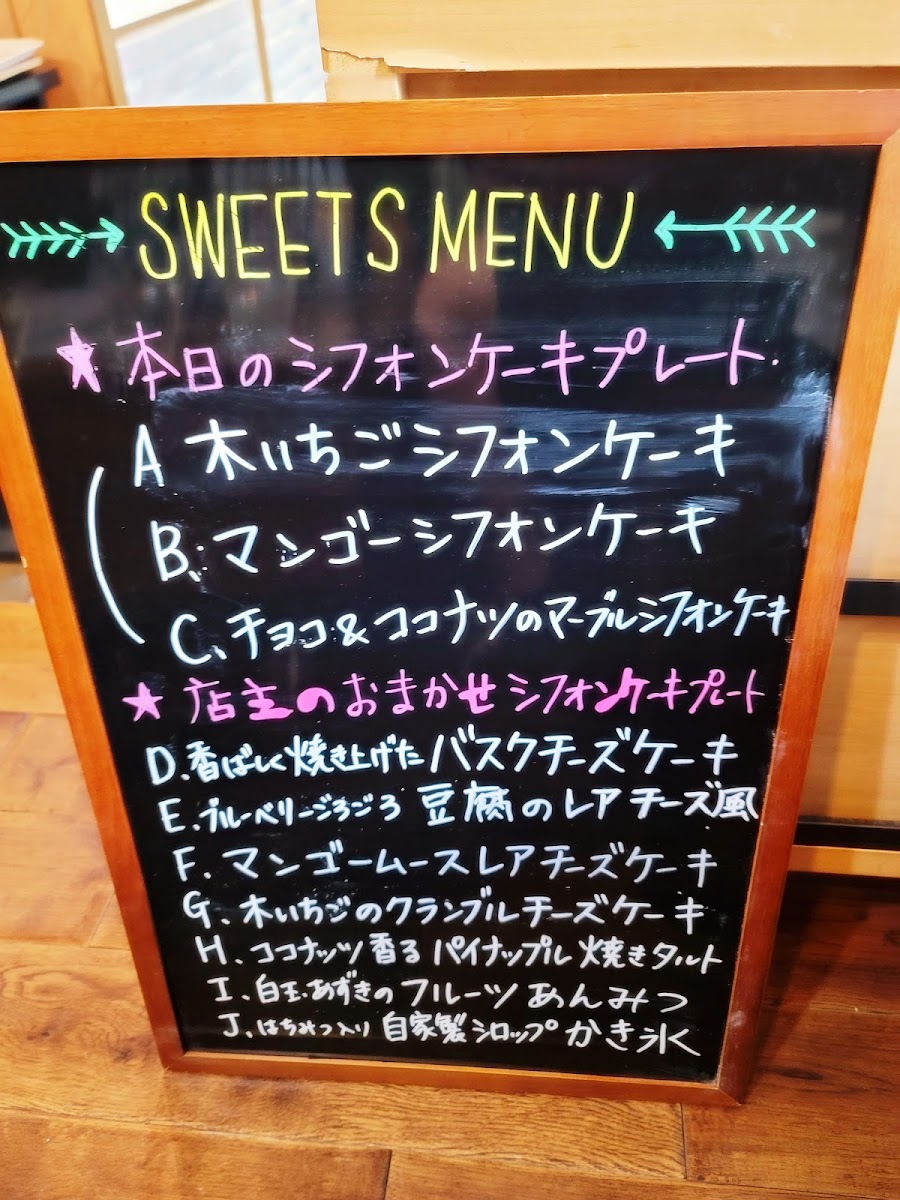 SWEETS MENU
★本日のシフォンケーキプレート
A 木いちごシフォンケーキ
B.マンゴーシフォンケーキ
C.チョコ&ココナツのマーブルシフォンケーキ
★店主のおまかせシフォンケーキプレート
D.香ばしく焼き上げたバスクチーズケーキ
E.ブルーベリーごろごろ豆腐のレアチーズ風
F.マンゴームースレアチーズケーキ
G.木いちごのクランブルチーズケーキ
H.ココナッツ香るパイナップル焼きタルト
I.白玉・あずきのフルーツあんみつ
J.はちみつ入り自家製シロップかき氷